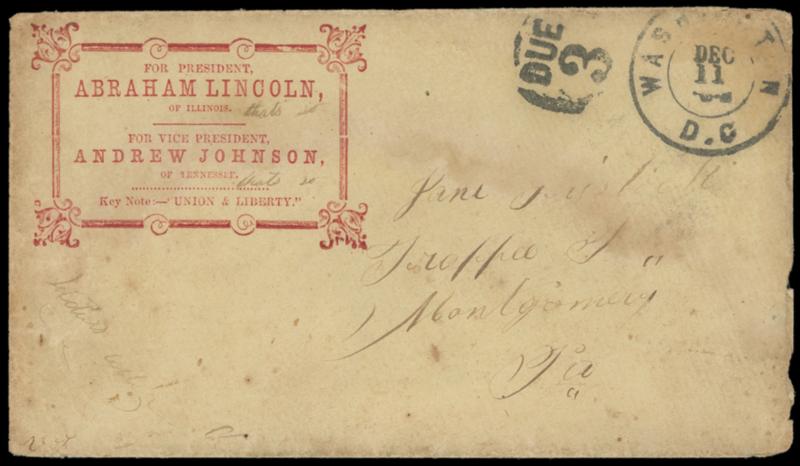 FOR PRESIDENT,
ABRAHAM LINCOLN,
OF ILLINOIS. thats so
FOR VICE PRESIDENT,
ANDREW JOHNSON,
OF TENNESSEE. thats so
Key Note:—"UNION & LIBERTY."
DUE
3
WASHINGTON
DEC
11
D.C
Jane
Trappe
Montgomery
Pa